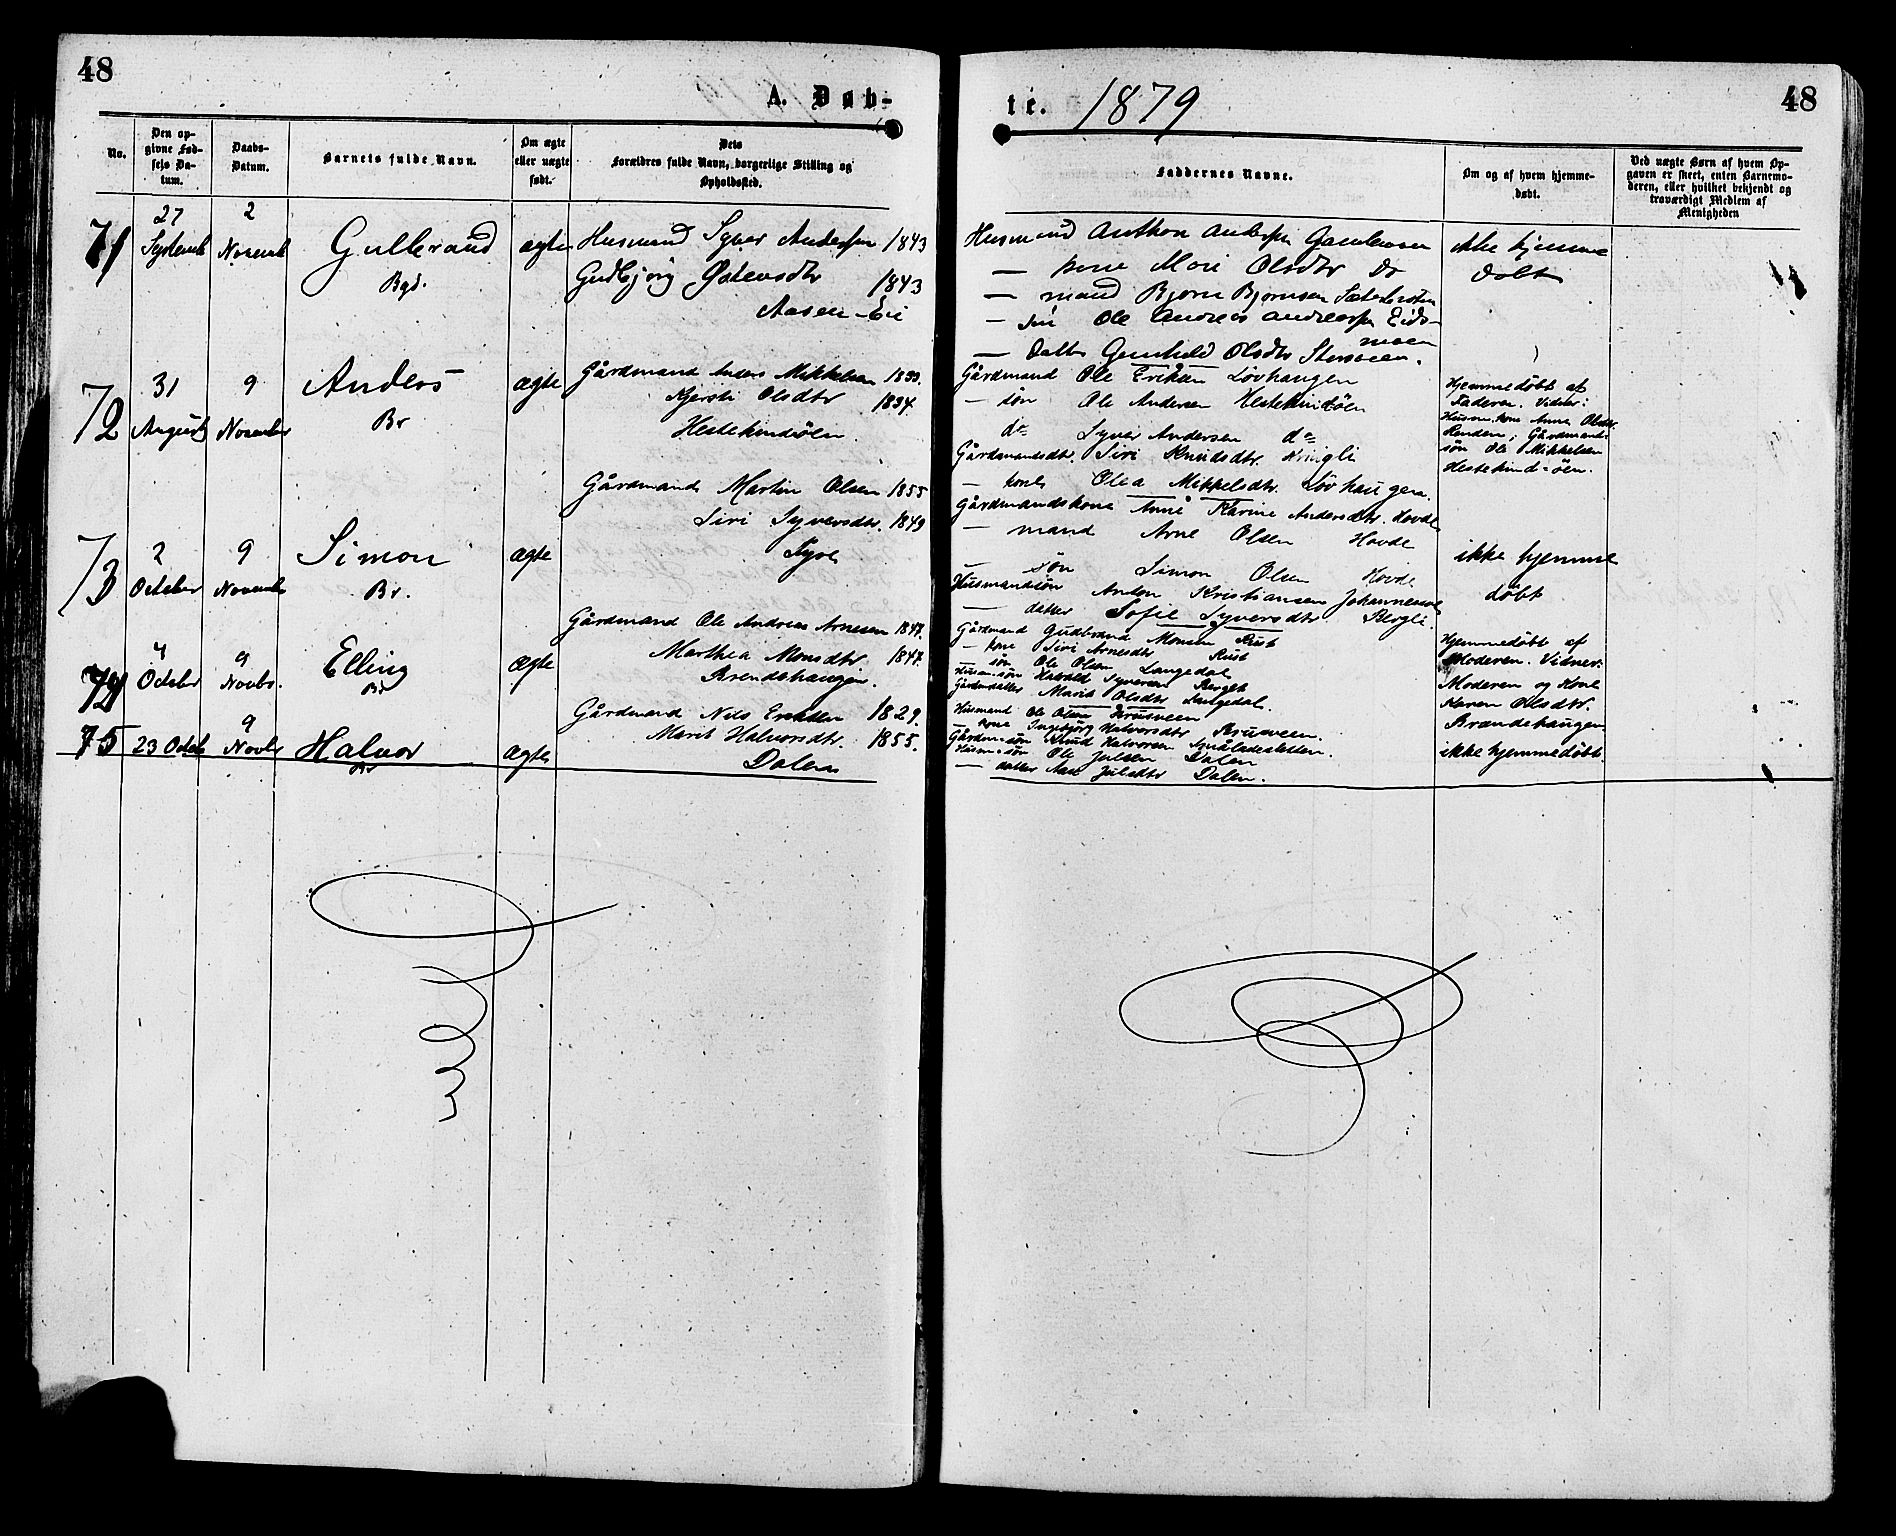 48
A. Døb-
te. 1879
48
No.
Den op-
givne Fød-
sels Da-
tum.
Daabs-
Datum.
Barnets fulde Navn.
Om ægte
eller uægte
født.
Dets
Forældres fulde Navn, borgerlige Stilling og
Opholdssted.
Faddernes Navne.
Om og af hvem hjemme-
døbt.
Ved uægte Børn af hvem Op-
gaven er skeet, enten Barnemo-
deren, eller hvilket bekjendt og
troværdigt Medlem af
Menigheden
71
27
Septemb
2
Novemb
Gulbrand
Bgd.
ægte
Husmand Syver Andersen 1843
Gudbjørg Østensdtr 1843
Aasen Eie
Husmand Anthon Andersen
— kone Mari Olsdtr do
— mand Bjørn Bjørnsen
— søn Ole Andreas Andersen Eids-
moen
— datter Gunhild Olsdtr
ikke hjemme
døbt
72
31
August
9
November
Anders
Br
ægte
Gårdmand Anders Mikkelsen 1833.
Kjersti Olsdtr 1834.
Hestekindölen.
Gårdmand Ole Eriksen Lövhaugen
— søn Ole Andersen Hestekindölen
do Syver Andersen do
Gårdmandsdtr. Siri Knudsdtr. Kringli
— kone Olea Mikkelsdtr. Lövhaugen.
Hjemmedöbt af
Faderen. Vidner:
Husm.kone Anne Olsdtr.
Gårdmands
søn Ole Mikkelsen
Hestekind-ölen.
73
2
October
9
November
Simon
Br.
ægte
Gårdmand Martin Olsen 1855
Siri Syversdtr. 1849
Gårdmandskone Anne Karine Andersdtr. Hovde
— mand Arne Olsen Hovde
— søn Simon Olsen Hovde
Husmandssøn Anton Kristiansen
— datter Sofie Syversdtr Bergli.
ikke hjemme
döbt
74
4
October
9
Novbr.
Elling
Br
ægte
Gårdmand Ole Andreas Arnesen 1847.
Marthea Monsdtr. 1847.
Brendehaugen.
Gårdmand Gudbrand Monsen Rust
— kone Siri Arnesdtr Rust
— søn Ole Olsen Langedal
Husm.søn Halvald Syversen Berget
Gårdm.datter Marit Olsdtr Langedal.
Hjemmedöbt af
Moderen. Vidner:
Moderen og Kone
Karen Olsdtr.
Brandehaugen
75
23 Octob
9
Novbr
Halvor
Br
ægte
Gårdmand Nils Eriksen 1829.
Marit Halvorsdtr. 1855.
Dalen
Husmand Ole Olsen Brusveen
— kone Ingeborg Halvorsdtr Brusveen.
Gårdm.søn Knud Halvorsen
Husm.søn Ole Julsen Dalen
— datter Julsdtr Dalen.
ikke hjemmedöbt.